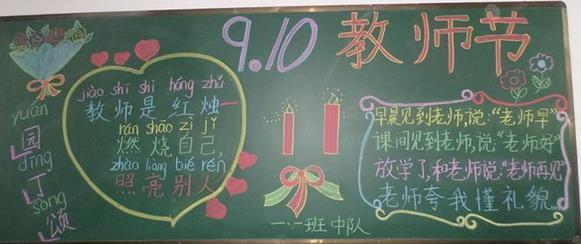 9.10 教师节
yuán
园
dīng
丁
sòng
颂
jiào shī shì hóng zhú
教师是红烛
rán shāo zì jǐ
燃烧自己,
zhào liàng bié rén
照亮别人
一.一班中队
早晨见到老师,说:"老师早"
课间见到老师,说:"老师好"
放学了,和老师说:"老师再见"
老师夸我懂礼貌...